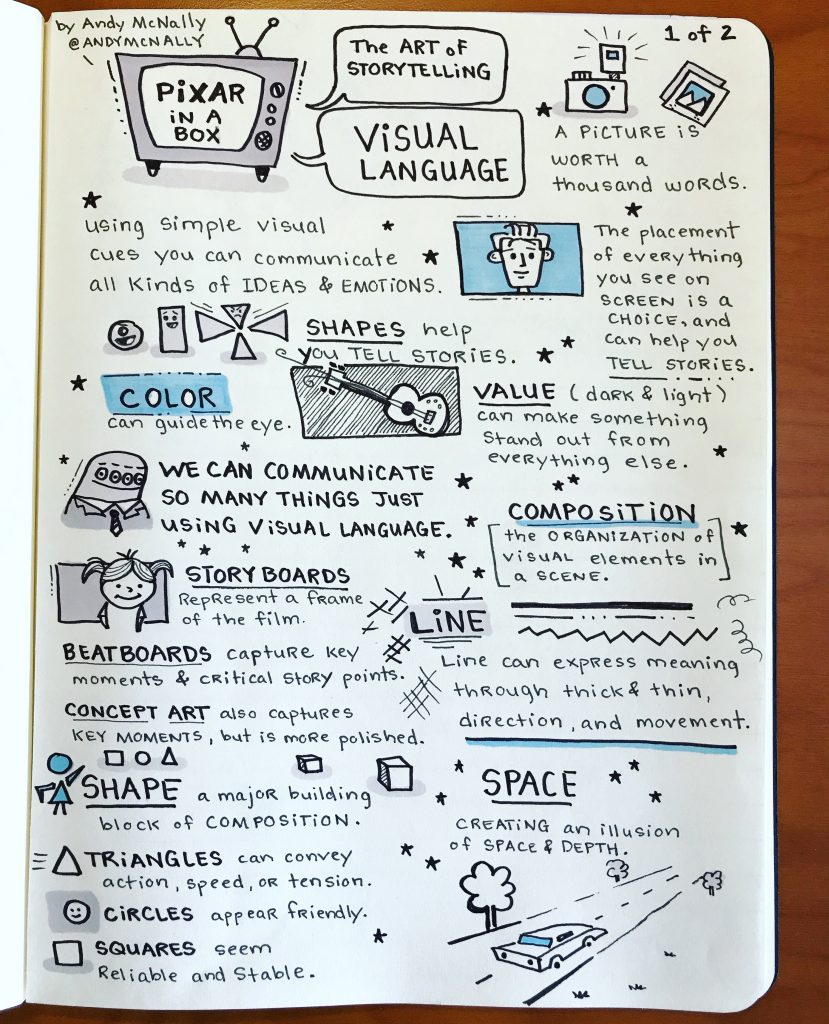 by Andy McNally
@ANDYMCNALLY
1 of 2
PiXAR
iN A
BOX
The ART of
STORYTELLiNG
ViSUAL
LANGUAGE
A PiCTURE iS
WORTH A
thousand WORDS.
using simple visual
cues you can communicate
all kinds of IDEAS & EMOTIONS.
The placement
of everything
you see on
SCREEN iS a
CHOiCE, and
can help you
TELL STORIES.
SHAPES help
you TELL STORIES.
COLOR
can guide the eye.
VALUE (dark & light)
can make something
stand out from
everything else.
WE CAN COMMUNiCATE
SO MANY THiNGS JUST
USiNG ViSUAL LANGUAGE.
COMPOSiTiON
the ORGANiZATiON of
ViSUAL elements in
a SCENE.
STORYBOARDS
Represent a frame
of the film.
BEATBOARDS capture key
moments & critical story points.
CONCEPT ART also captures
KEY MOMENTS, but is more polished.
LiNE
Line can express meaning
through thick & thin,
direction, and movement.
SHAPE a major building
block of COMPOSiTiON.
TRiANGLES can convey
action, speed, or tension.
CiRCLES appear friendly.
SQUARES seem
Reliable and Stable.
SPACE
CREATiNG an illusion
of SPACE & DEPTH.